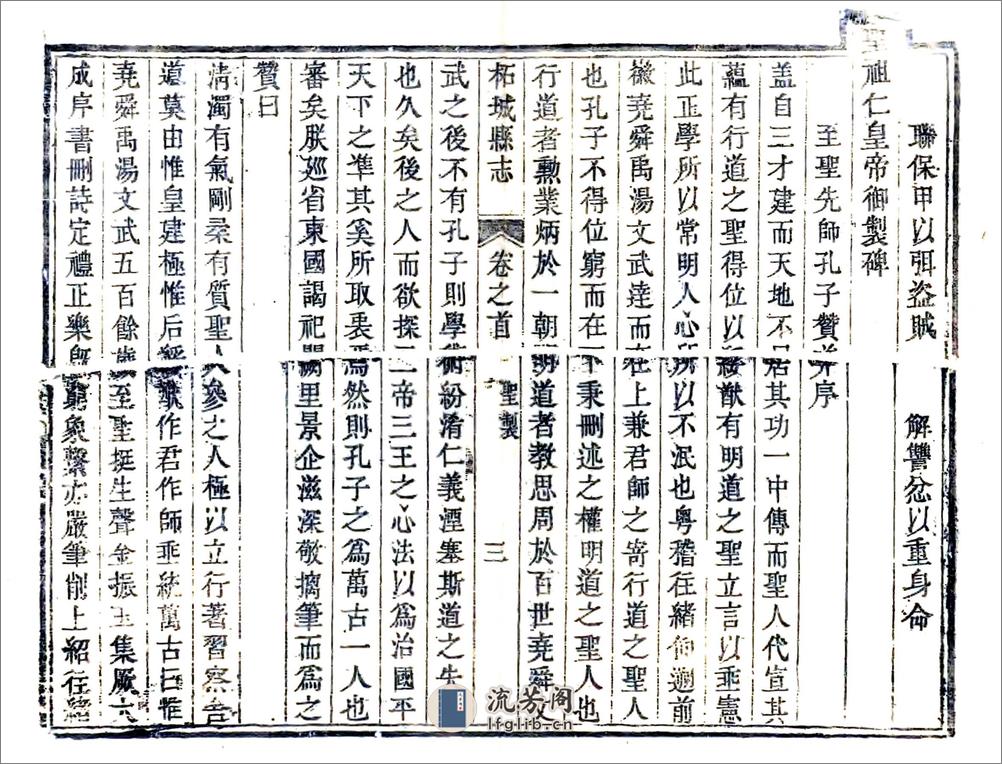 聯保甲以弭盜賊 解讐忿以重身命
聖祖仁皇帝御製碑
至聖先師孔子贊并序
盖自三才建而天地不居其功一中傳而聖人代宣其
蘊有行道之聖得位以綏猷有明道之聖立言以垂憲
此正學所以常明人心所以不泯也粤稽往緒仰遡前
徽堯舜禹湯文武達而在上兼君師之寄行道之聖人
也孔子不得位窮而在下秉刪述之權明道之聖人也
行道者勲業炳於一朝明道者教思周於百世堯舜文
柘城縣志 卷之首 聖製 三
武之後不有孔子則學術紛淆仁義湮塞斯道之失
也久矣後之人而欲探二帝三王之心法以爲治國平
天下之準其奚所取衷焉然則孔子之爲萬古一人也
審矣朕巡省東國謁祀闕里景企滋深敬摛筆而爲之
贊曰
清濁有氣剛柔有質聖人參之人極以立行著習察舍
道莫由惟皇建極惟后綏猷作君作師垂統萬古曰惟
堯舜禹湯文武五百餘歲至聖挺生聲金振玉集厥大
成序書刪詩定禮正樂既窮象繫亦嚴筆削上紹往緒
流芳阁
lfglib.cn